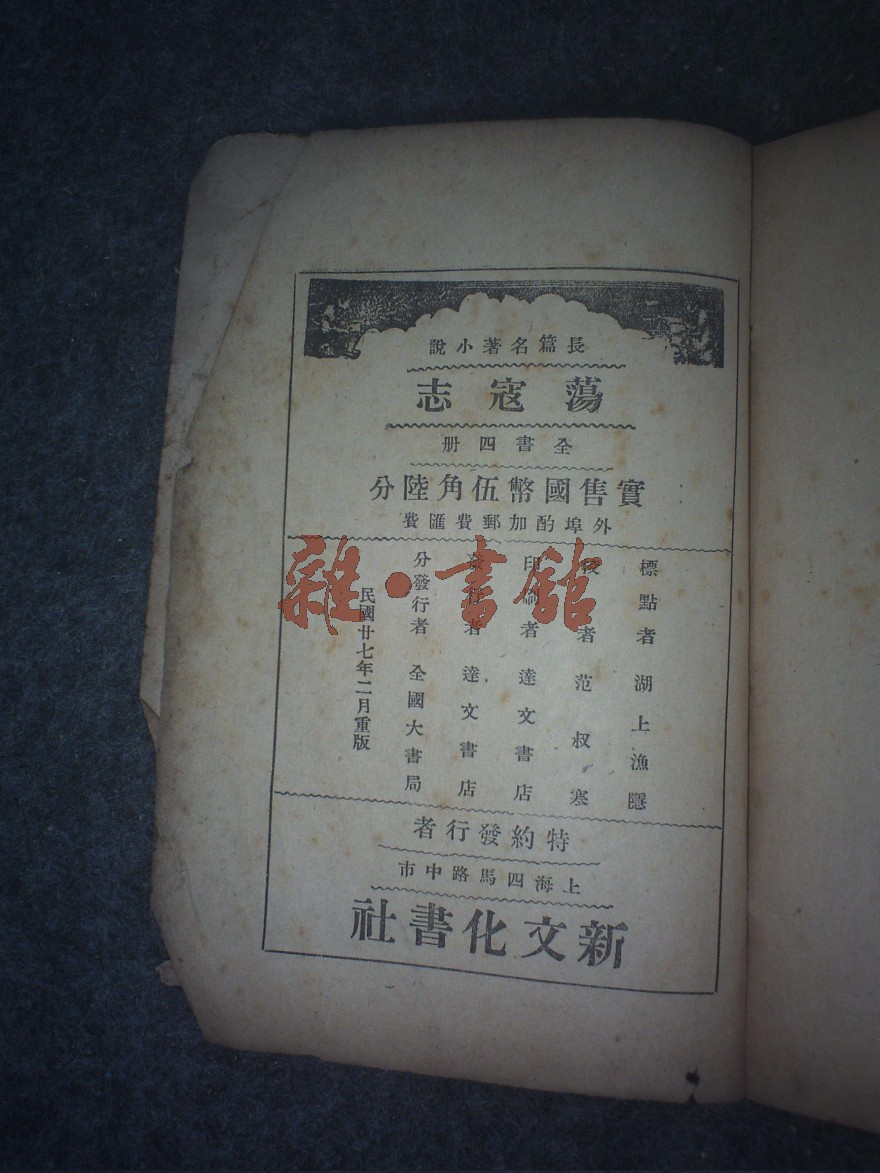 長篇名著小說
蕩寇志
全書四册
實售國幣伍角陸分
外埠酌加郵費匯費
標點者 湖上漁隱
校者 范叔寒
印刷者 達文書店
發行者 達文書店
分發行者 全國大書局
民國廿七年二月重版
特約發行者
上海四馬路中市
新文化書社
雜·書館